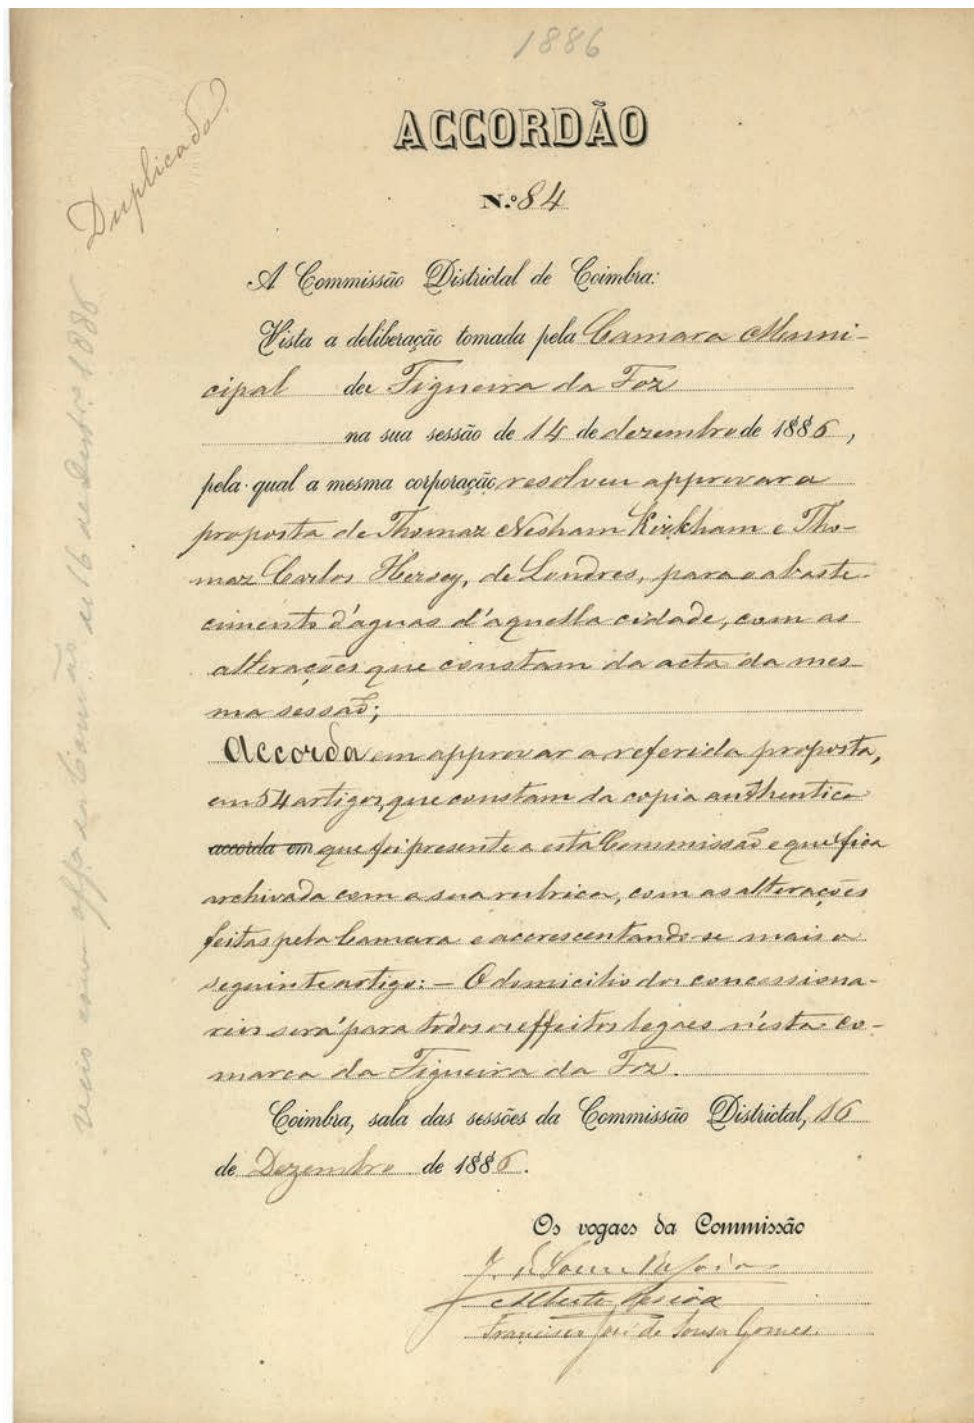 1886
Duplicado.
ACCORDÃO
N.º 84
A Commissão Districtal de Coimbra:
Vista a deliberação tomada pela Camara Muni-
cipal da Figueira da Foz
na sua sessão de 14 de dezembro de 1886,
pela qual a mesma corporação resolveu approvar a
proposta de Thomaz Nesham Kirkham e Tho-
maz Carlos Hersey, de Londres, para o abaste-
cimento d'aguas d'aquella cidade, com as
alterações que constam da acta da mes-
ma sessão;
Accorda em approvar a referida proposta,
em 54 artigos, que constam da copia authentica
accorda em que foi presente a esta Commissão e que fica
archivada com a sua rubrica, com as alterações
feitas pela Camara e accrescentando-se mais o
seguinte artigo: — O domicilio dos concessiona-
rios será para todos os effeitos legaes n'esta co-
marca da Figueira da Foz.
Coimbra, sala das sessões da Commissão Districtal, 16
de Dezembro de 1886.
Os vogaes da Commissão
Alberto Pessôa
Francisco José de Sousa Gomes.
veio com off.º da Commissão de 16 de Dezbr.º 1886